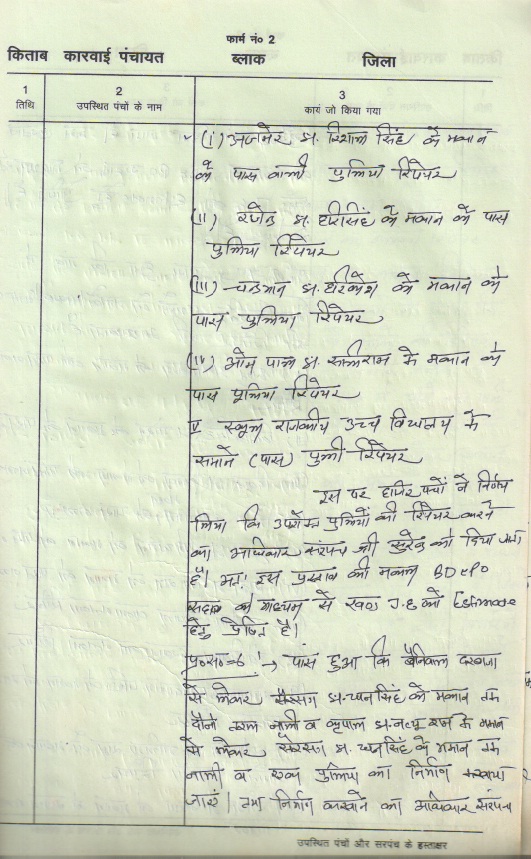 फार्म नं० 2
किताब कारवाई पंचायत ब्लाक जिला
1 2 3
तिथि उपस्थित पंचों के नाम कार्य जो किया गया
(i) अजमेर S/o. रिशाल सिंह के मकान
के पास वाली पुलिया रिपेयर
(ii) राजेन्द्र S/o. हरिसिंह के मकान के पास
पुलिया रिपेयर
(iii) चन्द्रभान S/o. हरिकेश के मकान के
पास पुलिया रिपेयर
(iv) ओम पाल S/o. के मकान के
पास पुलिया रिपेयर
V स्कूल राजकीय उच्च विद्यालय के
सामने (पास) पुली रिपेयर
इस पर हाजिर पंचों ने निर्णय
लिया कि उपरोक्त पुलियों की रिपेयर करने
का अधिकार सरपंच श्री सुरेन्द्र को दिया जाता
है। अतः इस प्रस्ताव की नकल BDePo
के माध्यम से J.E को Estimate
हेतु प्रेषित है।
प्र०स०=6 :→ पास हुआ कि दरवाजा
से लेकर S/o. के मकान तक
दोनो तरफ नाली व S/o. के मकान
से लेकर S/o. के मकान तक
नाली व एक पुलिया का निर्माण करवाया
जाए। तथा निर्माण करवाने का अधिकार सरपंच
उपस्थित पंचों और सरपंच के हस्ताक्षर